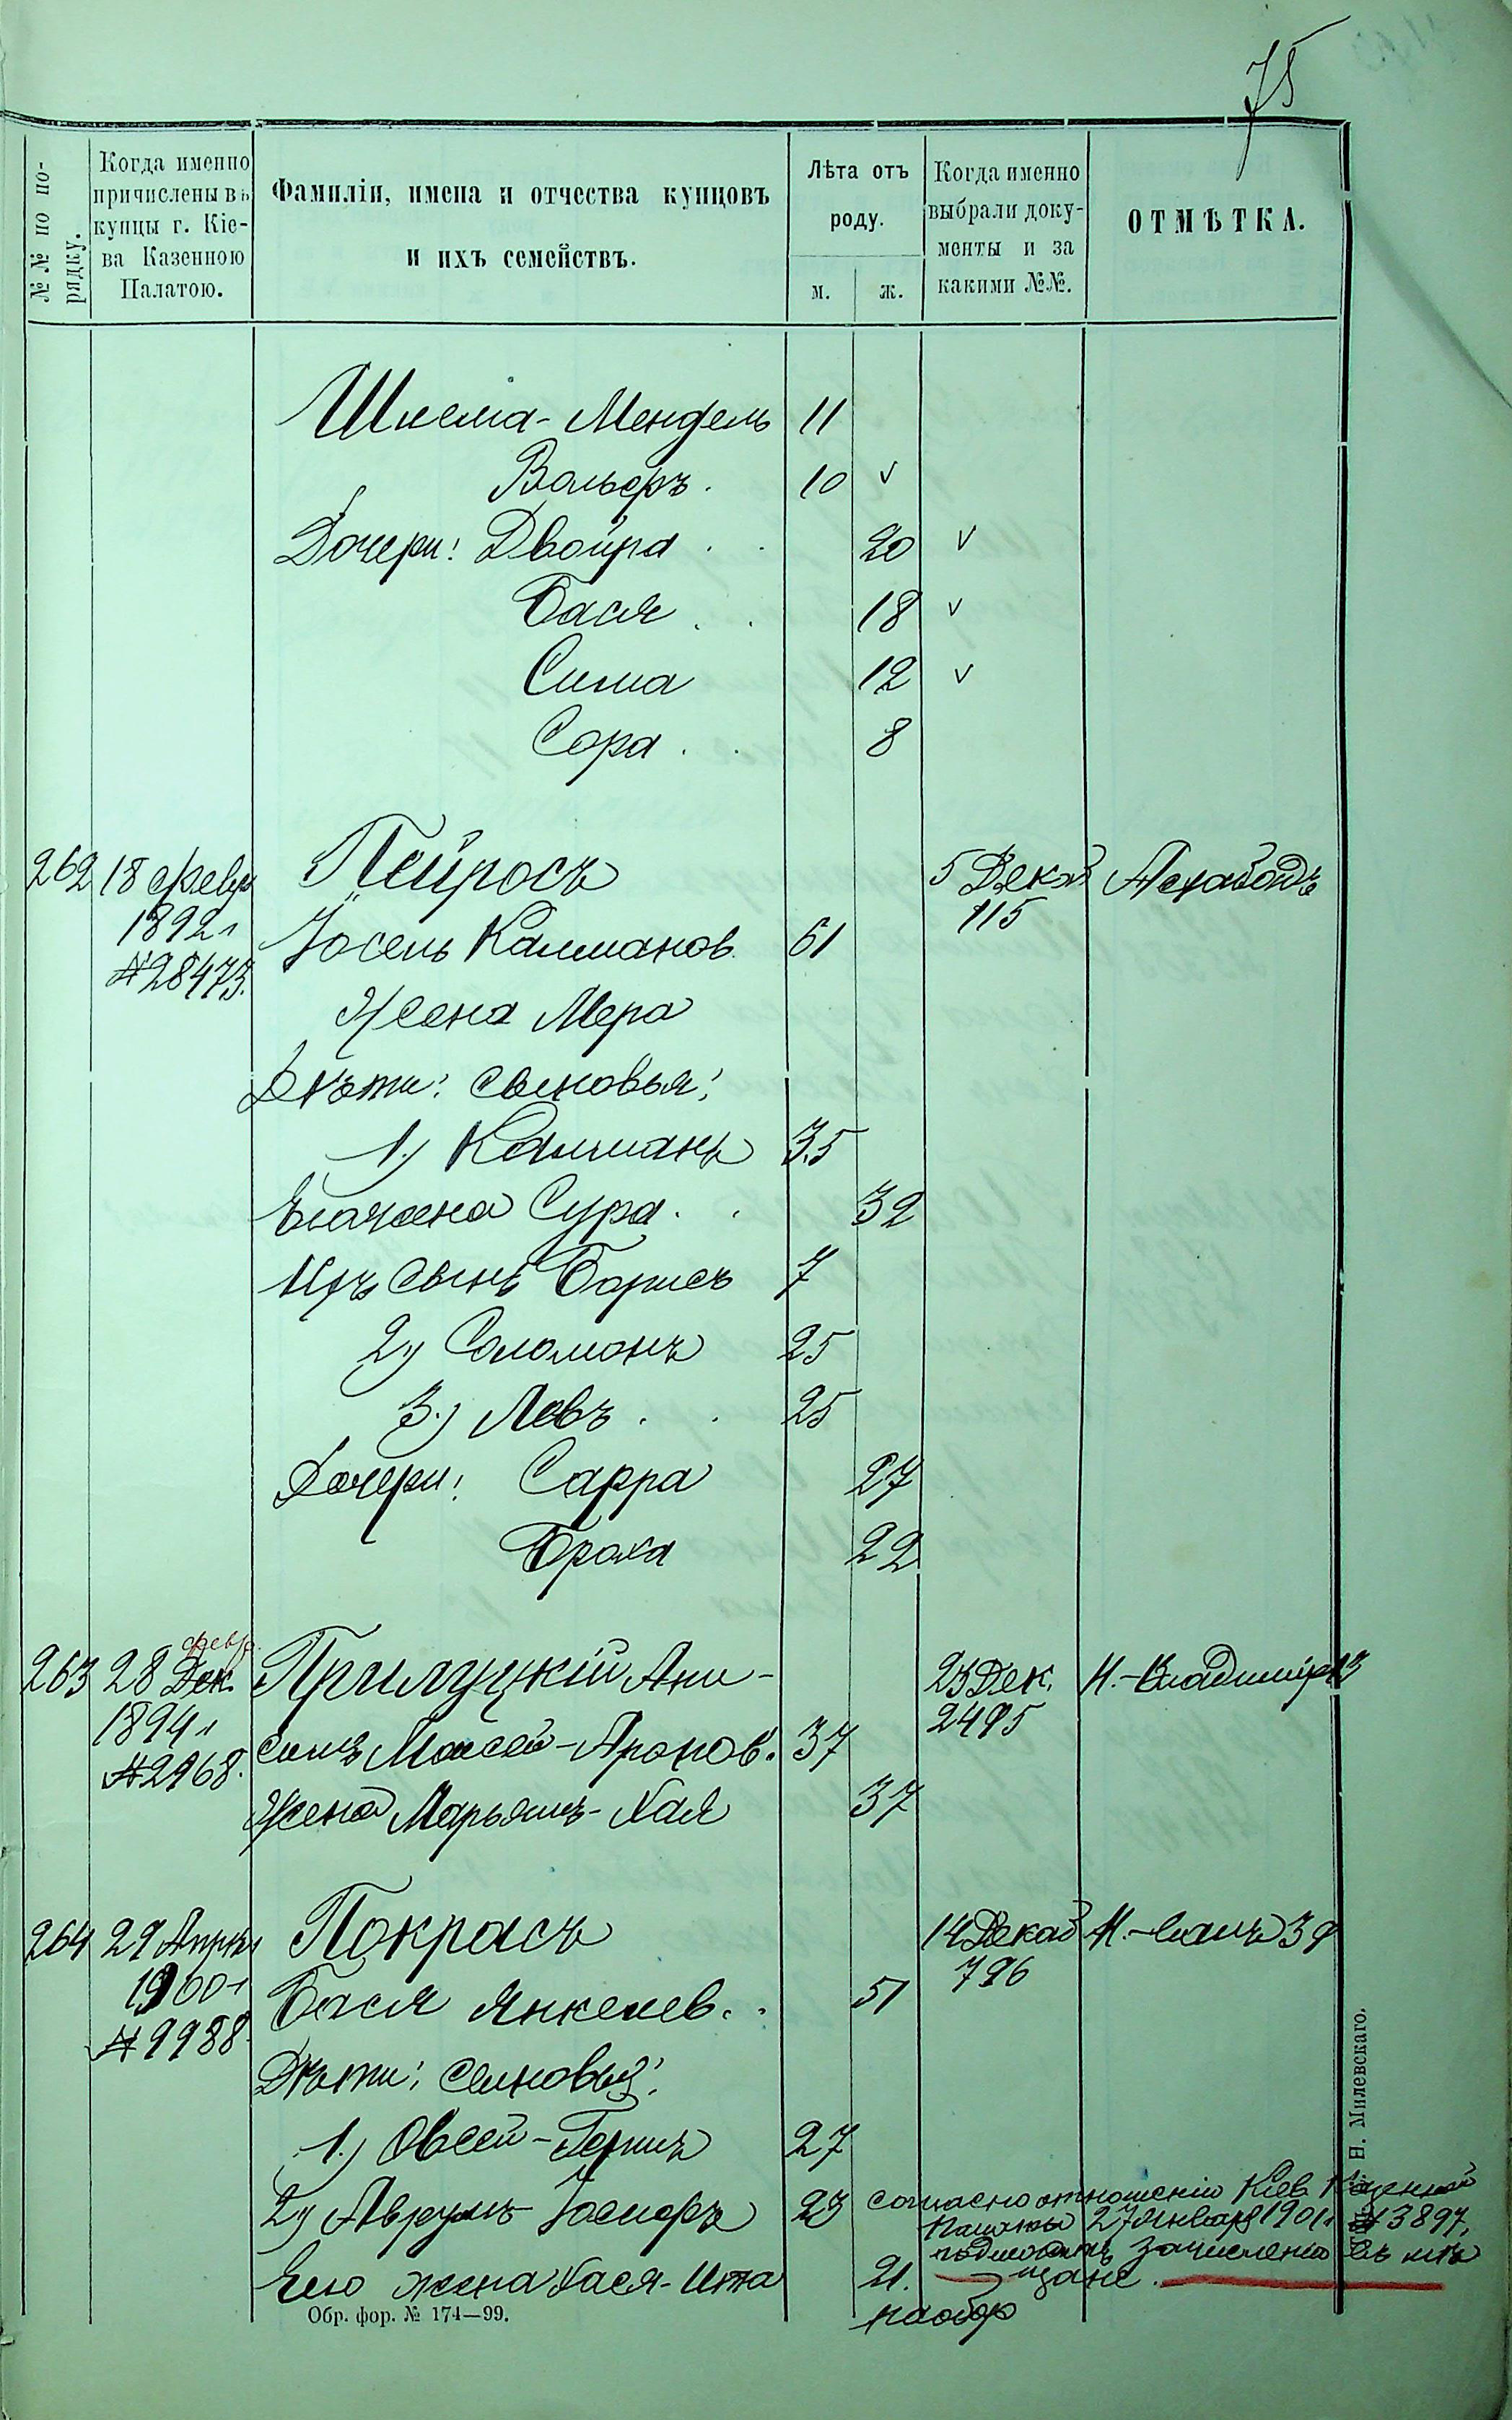 75
№№ по по-
рядку.
Когда именно
причислены въ
купцы г. Кіе-
ва Казенною
Палатою.
Фамиліи, имена и отчества купцовъ
и ихъ семействъ.
Лѣта отъ
роду.
м.
ж.
Когда именно
выбрали доку-
менты и за
какими №№.
ОТМѢТКА.
Шлема-Мендель 11
Вольфъ. 10 v
Дочери: Двойра 20 v
Бася 18 v
Сима 12 v
Сора 8
262 18 февр Пейросъ 5 Декаб Асхабадъ
1892 г 115
№28473.
Іосель Калманов. 61
Жена Мера
Дѣти: сыновья:
1.) Калманъ 35
Его жена Сура 32
Ихъ сынъ Борисъ 7
2) Соломонъ 25
3.) Левъ 25
Дочери: Сарра 27
Броха 22
февр.
263 28 Дек. Прилуцкій Ани- 23 Дек. М.-Владимірс
1894 г 2495
№2968.
симъ Моисей-Аронов. 37
Жена Марьямъ-Хая 37
264 29 Апрѣл Покрасъ 14 Декаб 39
1900 г 796
№9988
Бася Янкелев. 51
Дѣти: сыновья:
1.) Овсей-Гершъ 27
2) Аврумъ-Іосифъ 23
Его жена Хася-Ита 21.
согласно отношенію Кіев Казенной
Палаты 27 Января 1901 г № 3897,
подлежатъ зачисленію въ мѣ
щане.
наобор
Обр. фор. № 174—99.
Н. Милевскаго.